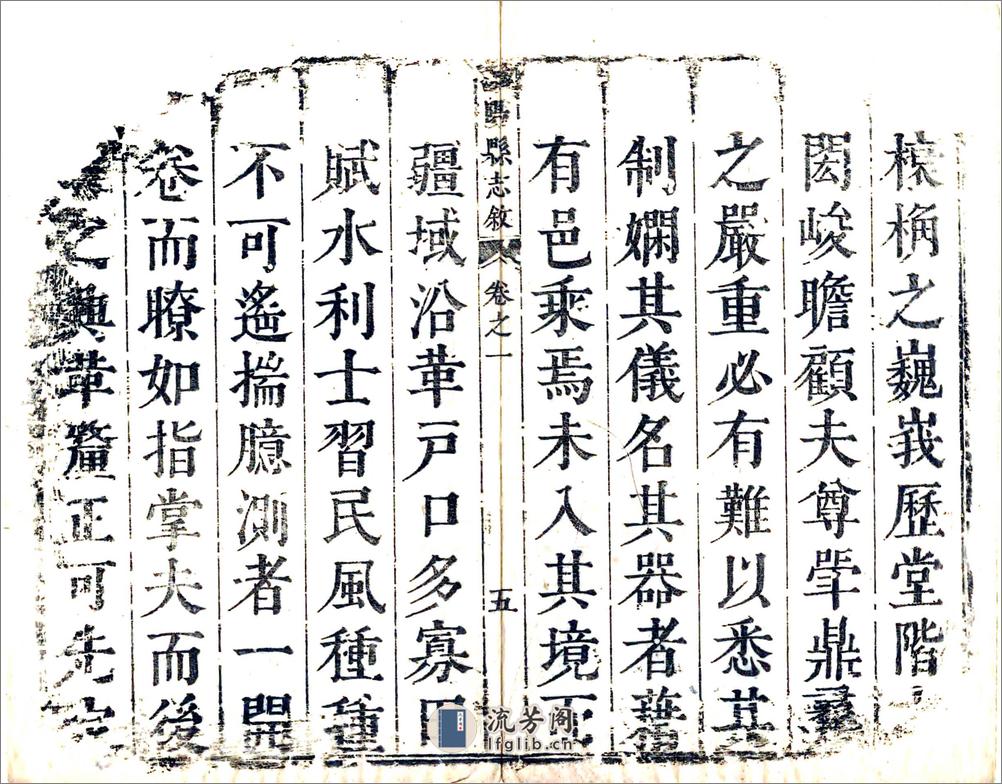 榱桷之巍峩歷堂階
閎峻瞻顧夫尊斝鼎彞
之嚴重必有難以悉其
制嫻其儀名其器者華
有邑乘焉未入其境而
縣志敘 卷之一 五
疆域沿革戸口多寡田
賦水利士習民風種種
不可遙揣臆測者一開
卷而瞭如指掌夫而後
之興革釐正可先定
流芳阁
lfglib.cn